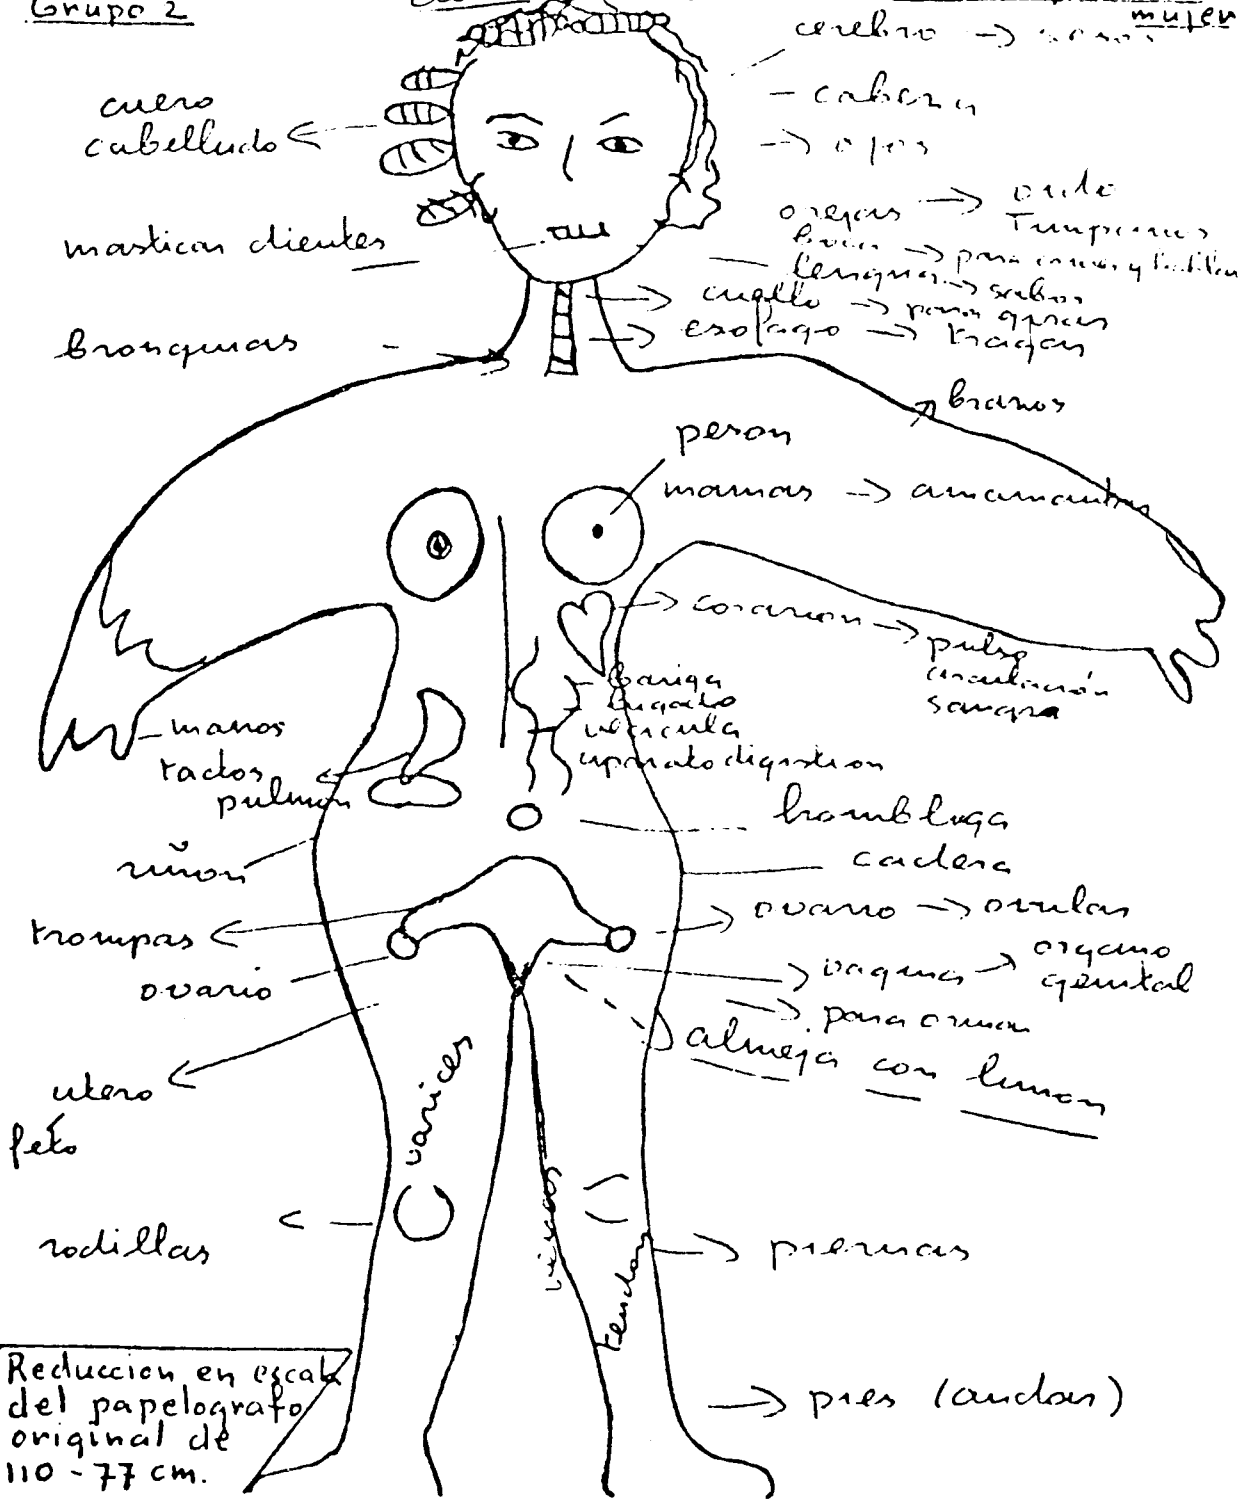 Grupo 2
mujer
cerebro →
cuero
cabelludo
- cabeza
→ ojos
orejas → oido
Timpanos
masticar dientes
boca → para comer y hablar
lengua → sabor
cuello → para girar
esofago → tragar
bronquias
brazos
peson
mamas → amamantar
corazion → pulso
circulación
sangre
bariga
higado
vecicula
aparato digistion
manos
tactos
pulmon
hombliga
riñon
cadera
trompas
ovario → ovulas
ovario
vagina → organo
genital
→ para orinar
almeja con limon
utero
feto
varices
venas
tendon
rodillas
piernas
pies (andar)
Reduccion en escala
del papelografo
original de
110 - 77 cm.